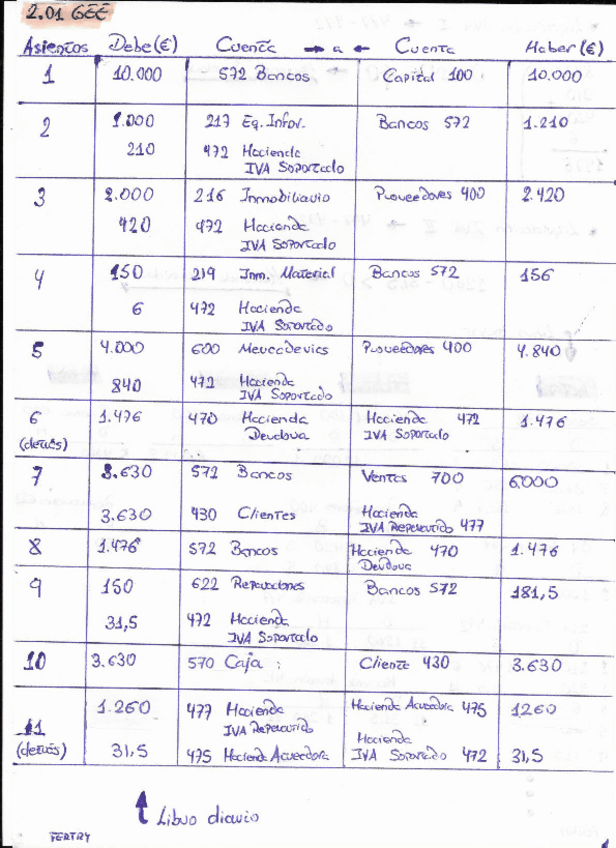 2.01 GEE
Asientos Debe (€) Cuenta → a ← Cuenta Haber (€)
1 10.000 572 Bancos Capital 100 10.000
2 1.000 217 Eq. Infor. Bancos 572 1.210
210 472 Hacienda
IVA Soportado
3 2.000 216 Inmobiliario Proveedores 400 2.420
420 472 Hacienda
IVA Soportado
4 150 219 Inm. Material Bancos 572 156
6 472 Hacienda
IVA Soportado
5 4.000 600 Mercaderías Proveedores 400 4.840
840 472 Hacienda
IVA Soportado
6 1.476 470 Hacienda Hacienda 472 1.476
(detrás) Deudora IVA Soportado
7 3.630 572 Bancos Ventas 700 6000
3.630 430 Clientes Hacienda
IVA Repercutido 477
8 1.476 572 Bancos Hacienda 470 1.476
Deudora
9 150 622 Reparaciones Bancos 572 181,5
31,5 472 Hacienda
IVA Soportado
10 3.630 570 Caja Cliente 430 3.630
11 1.260 477 Hacienda Hacienda Acreedora 475 1260
IVA Repercutido
(detrás) 31,5 475 Hacienda Acreedora Hacienda
IVA Soportado 472 31,5
Libro diario
FERTRY